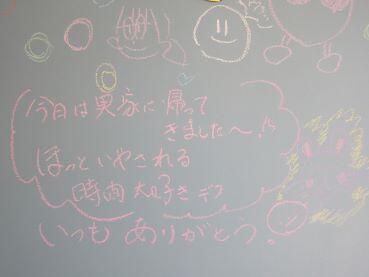 今日は実家に帰って
きました〜!!
ほっといやされる
時間大好きデス
いつもありがとう。